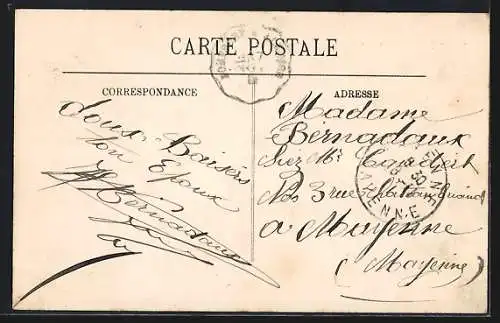 CARTE POSTALE
CORRESPONDANCE
ADRESSE
doux Baisers
ton Epoux
Bernadaux
Madame
Bernadaux
chez Mr
No 3 rue
a Mayenne
(Mayenne)